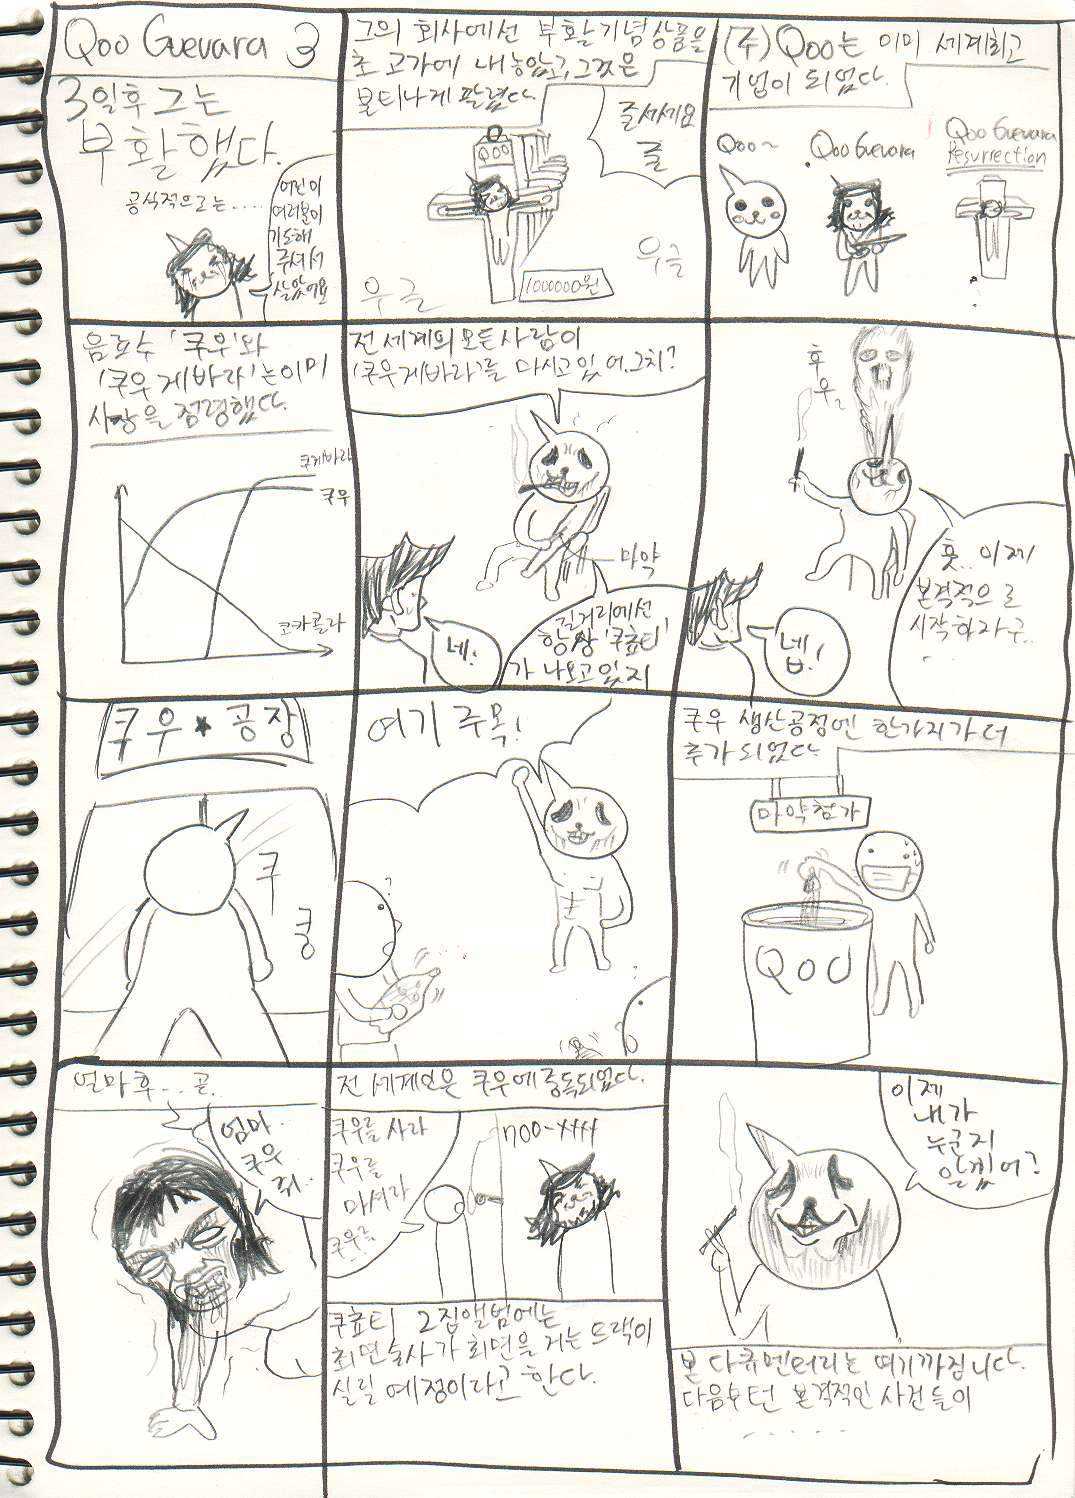 Qoo Guevara 3
3일후 그는
부활했다.
공식적으로는.....
여러분이
기도해
주셔서
살았어요
그의 회사에선 부활기념상품을
초 고가에 내놓았고, 그것은
불티나게 팔렸다.
줄서세요
줄
QOO
우글
우글
1000000원
(주)Qoo는 이미 세계최고
기업이 되었다.
Qoo~
Qoo Guevara
Qoo Guevara
Resurrection
음료수 '쿠우'와
'쿠우게바라'는 이미
시장을 점령했다.
쿠게바라
쿠우
코카콜라
전 세계의 모든 사람이
'쿠우게바라'를 마시고 있어. 그치?
마약
네!
길거리에선
항상 '쿠쵸티'
가 나오고 있지
후우
훗.. 이제
본격적으로
시작하라구..
넵!
쿠우★공장
쿠
쿵
여기 주목!
?
쿠우 생산공정엔 한가지가 더
추가되었다.
마약첨가
Qoo
얼마후... 곧..
엄마..
쿠우
줘..
전 세계인은 쿠우에 중독되었다.
쿠우를 사라
쿠우를
마셔라
쿠우를
700-XXXX
쿠쵸티 2집앨범에는
최면술사가 최면을 거는 트랙이
실릴 예정이라고 한다.
이제
내가
누군지
알겠어?
본 다큐멘터리는 여기까집니다.
다음부턴 본격적인 사건들이
.....